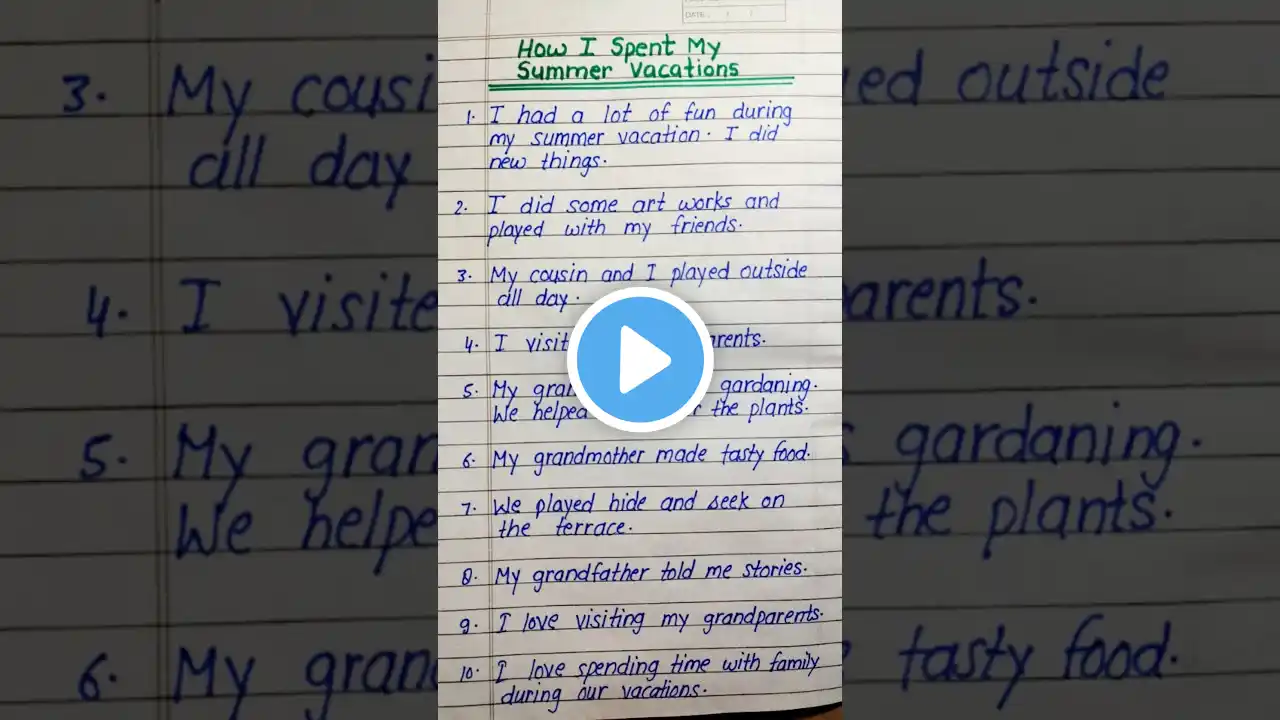 DATE
How I Spent My
Summer Vacations
1. I had a lot of fun during
my summer vacation. I did
new things.
2. I did some art works and
played with my friends.
3. My cousin and I played outside
all day.
4. I visit arents.
5. My gran gardaning.
We helped the plants.
6. My grandmother made tasty food.
7. We played hide and seek on
the terrace.
8. My grandfather told me stories.
9. I love visiting my grandparents.
10. I love spending time with family
during our vacations.
3. My cousi
all day
4. I visite
5. My gran
We helpe
6. My gran
ed outside
arents.
gardaning.
the plants.
tasty food.